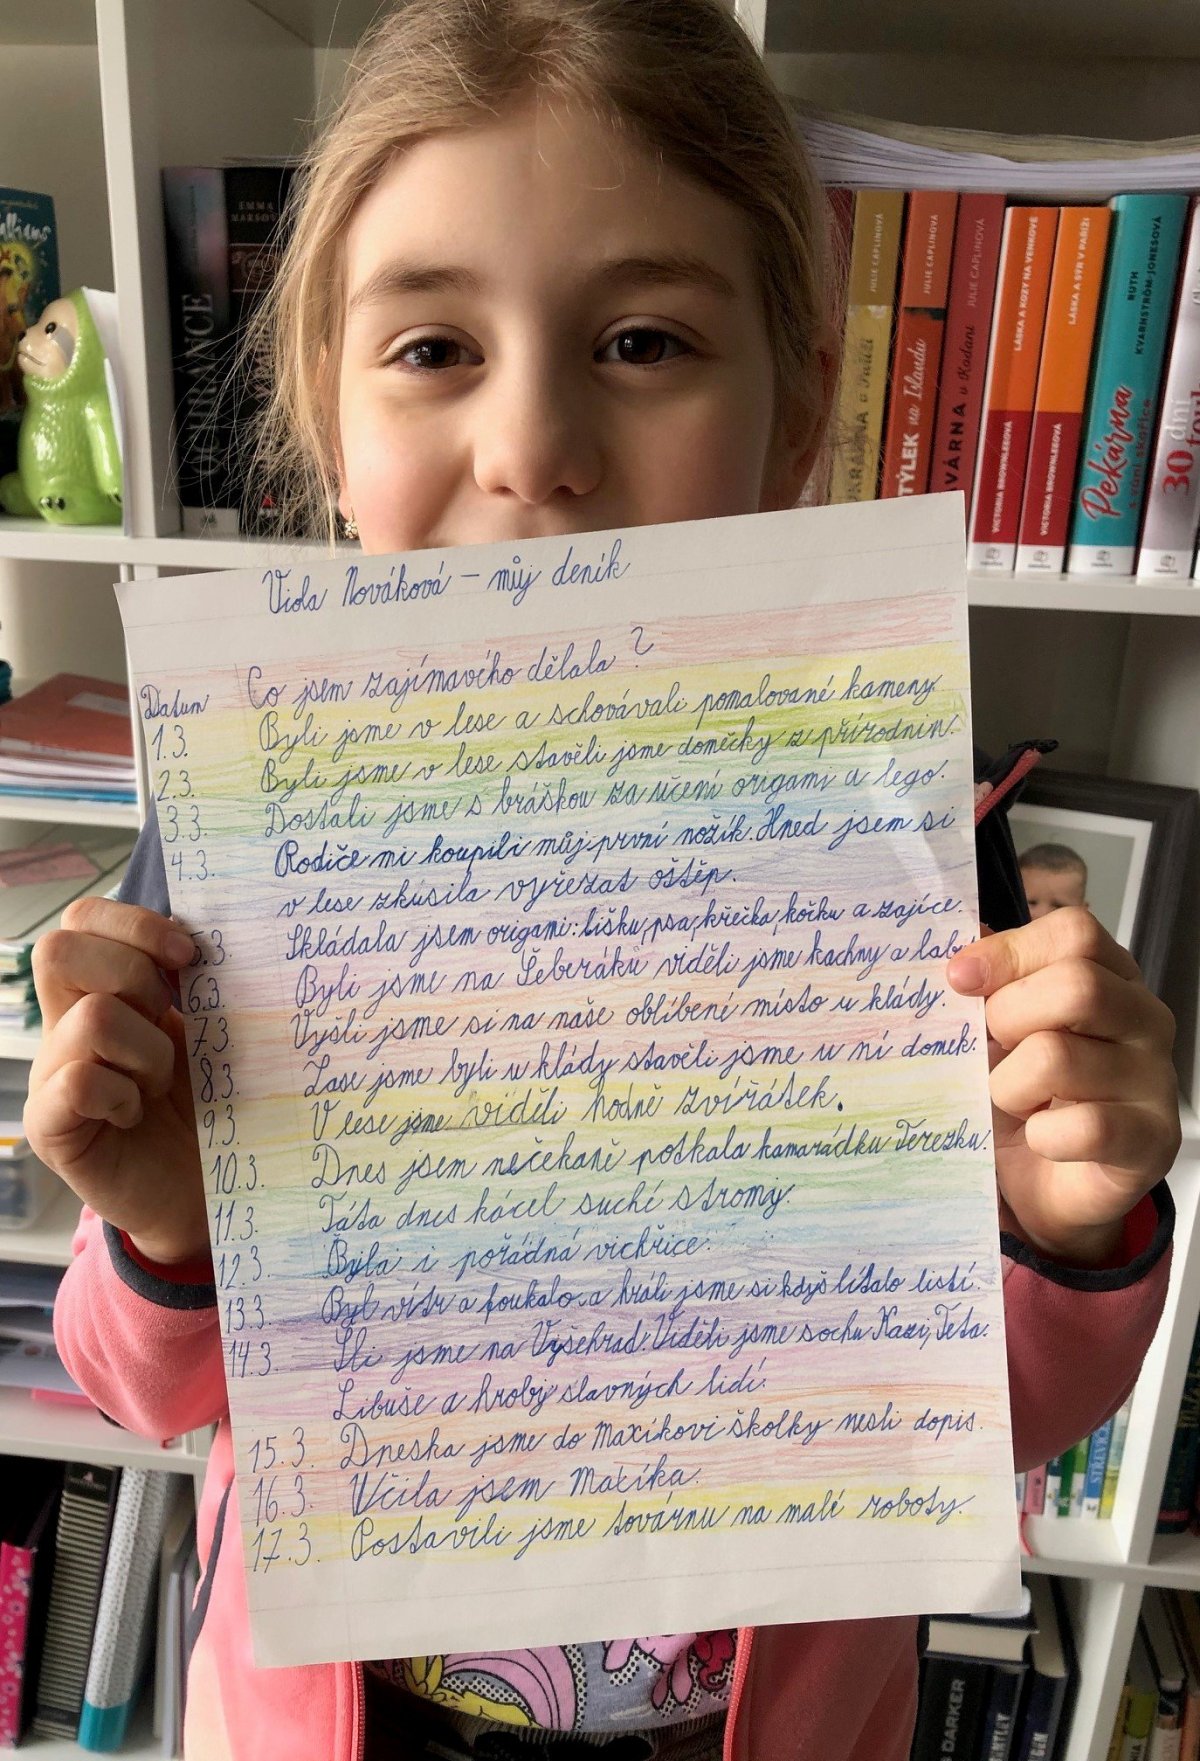 EMMA
OCHRANCE
JULIE CAPLINOVÁ
JULIE CAPLINOVÁ
TÝLEK na Islandu
JULIE CAPLINOVÁ
VÁRNA v Kodani
LÁSKA A KOZY NA VENKOVĚ
VICTORIA BROWNLEEOVÁ
LÁSKA A SÝR V PAŘÍŽI
VICTORIA BROWNLEEOVÁ
RUTH KVARNSTRÖM-JONESOVÁ
Pekárna s vůní skořice
30 dní
Viola Nováková – můj deník
Datum Co jsem zajímavího dělala?
1.3. Byli jsme v lese a schovávali pomalované kameny
2.3. Byli jsme v lese stavěli jsme domečky z přírodnin.
3.3. Dostali jsme s bráškou za učení origami a lego.
4.3. Rodiče mi koupili můj první nožík. Hned jsem si
v lese zkusila vyřezat oštěp.
5.3. Skládala jsem origami: lišku, psa, křečka, kočku a zajíce.
6.3. Byli jsme na Šeberáku viděli jsme kachny a labu
7.3. Vyšli jsme si na naše oblíbení místo u klády.
8.3. Zase jsme byli u klády stavěli jsme u ní domek.
9.3. V lese jsme viděli hodně zvířátek.
10.3. Dnes jsem nečekaně potkala kamarádku Terezku.
11.3. Táta dnes kácel suchí stromy.
12.3. Byla i pořádná vichřice.
13.3. Byl vítr a foukalo a hráli jsme si když lítalo listí.
14.3. Šli jsme na Vyšehrad. Viděli jsme sochu Kazi, Teta.
Libuše a hroby slavných lidí.
15.3. Dneska jsme do Maxíkovi školky nesli dopis.
16.3. Učila jsem Maxíka.
17.3. Postavili jsme továrnu na malé roboty.
DARKER